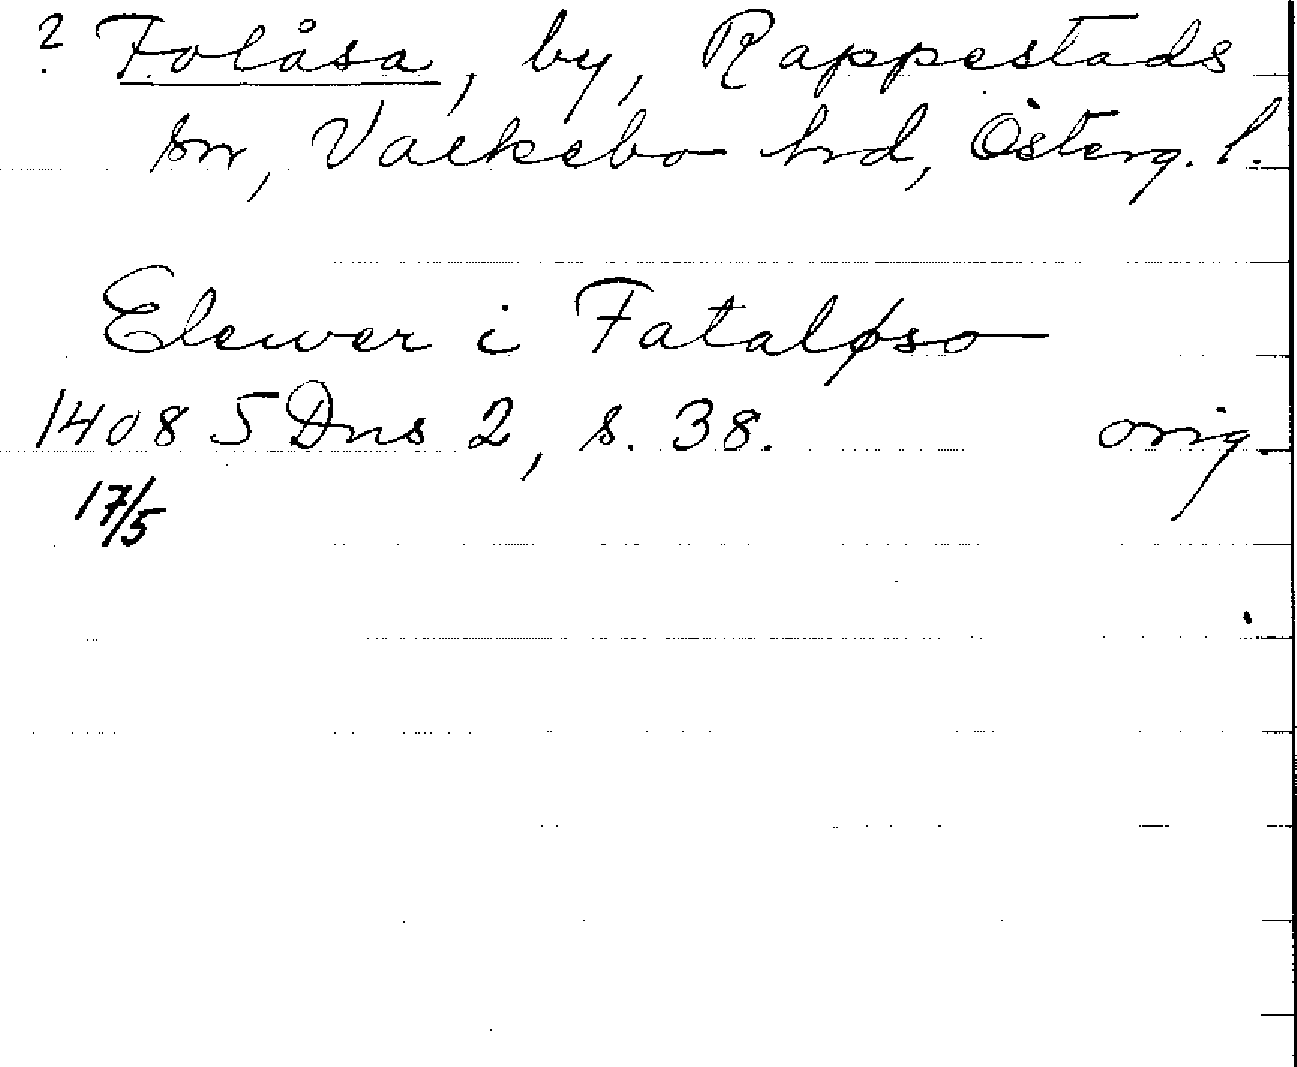 ? Folåsa, by, Rappestads
sn, Valkebo hrd, Österg. l.
Elewer i Fataløso
1408 SDns 2, s. 38. orig
17/5